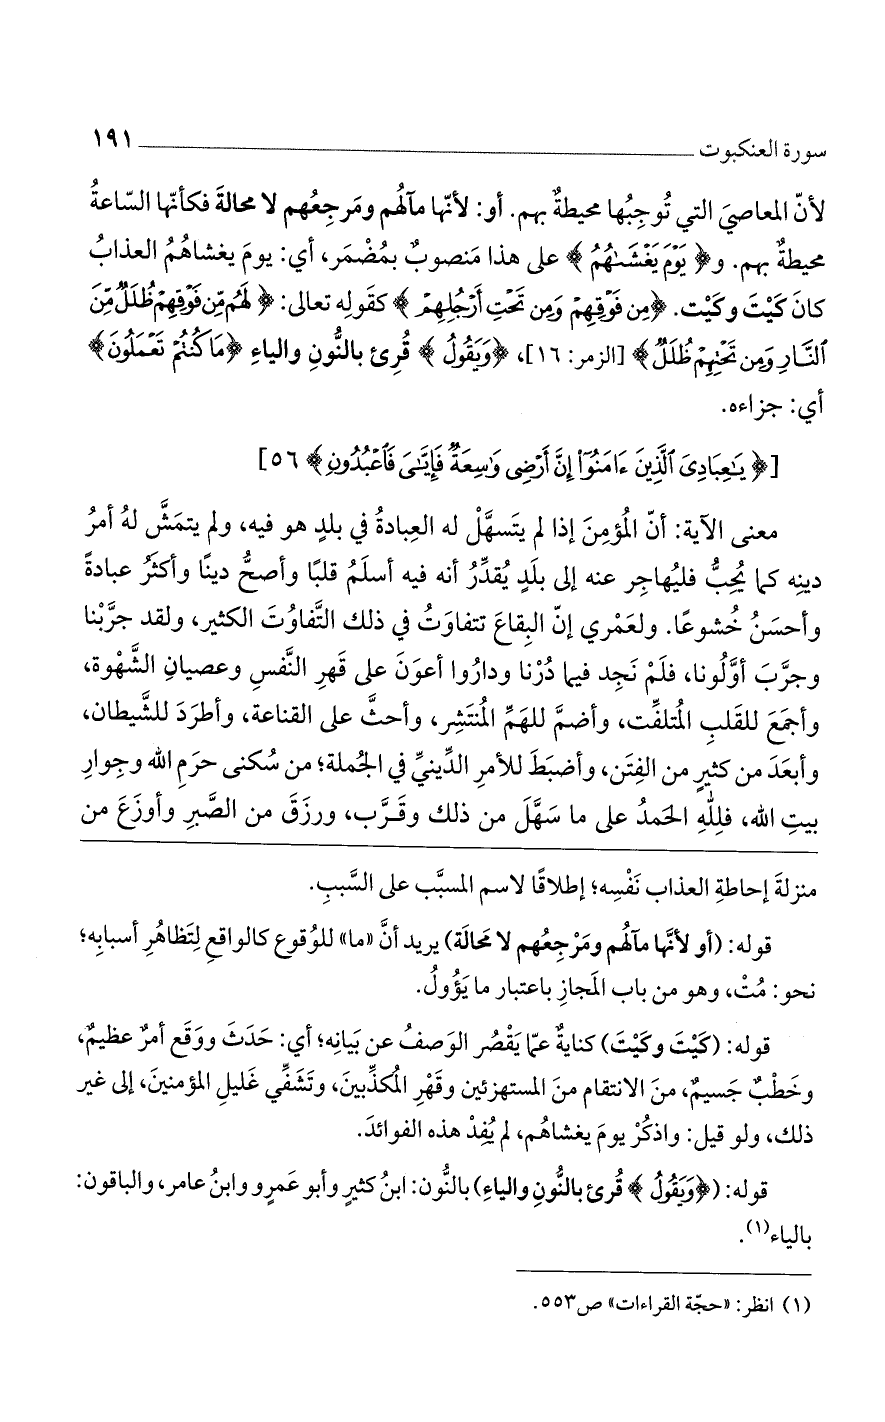 سورة العنكبوت ١٩١
لأنّ المعاصيَ التي تُوجِبُها محيطةٌ بهم. أو: لأنّها مآلُهم ومَرجِعُهم لا محالةَ فكأنّها السّاعةُ
محيطةٌ بهم. و﴿ يَوْمَ يَغْشَىٰهُمُ ﴾ على هذا مَنصوبٌ بمُضْمَر، أي: يومَ يغشاهُمُ العذابُ
كانَ كَيْتَ وكَيْت. ﴿مِن فَوْقِهِمْ وَمِن تَحْتِ أَرْجُلِهِمْ ﴾ كقولِه تعالى: ﴿ لَهُم مِّن فَوْقِهِمْ ظُلَلٌ مِّنَ
ٱلنَّارِ وَمِن تَحْتِهِمْ ظُلَلٌ ﴾ [الزمر: ١٦]، ﴿وَيَقُولُ ﴾ قُرِئ بالنُّونِ والياءِ ﴿مَا كُنتُمْ تَعْمَلُونَ﴾
أي: جزاءه.
[﴿ يَٰعِبَادِىَ ٱلَّذِينَ ءَامَنُوٓا۟ إِنَّ أَرْضِى وَٰسِعَةٌ فَإِيَّٰىَ فَٱعْبُدُونِ ﴾ ٥٦]
معنى الآية: أنّ المُؤمِنَ إذا لم يتَسهَّلْ له العِبادةُ في بلدٍ هو فيه، ولم يتمَشَّ لهُ أمرُ
دينِه كما يُحِبُّ فليُهاجِر عنه إلى بلَدٍ يُقدِّرُ أنه فيه أسلَمُ قلبًا وأصحُّ دينًا وأكثَرُ عبادةً
وأحسَنُ خُشوعًا. ولعَمْري إنّ البِقاعَ تتفاوَتُ في ذلك التَّفاوُتَ الكثير، ولقد جرَّبْنا
وجرَّبَ أوَّلُونا، فلَمْ نَجِد فيما دُرْنا ودارُوا أعوَنَ على قَهرِ النَّفسِ وعصيانِ الشَّهْوة،
وأجمَعَ للقَلبِ المُتلفِّت، وأضمَّ للهَمِّ المُنتَشِر، وأحثَّ على القناعة، وأطرَدَ للشَّيطان،
وأبعَدَ من كثيرٍ من الفِتَن، وأضبَطَ للأمرِ الدِّينيِّ في الجُملة؛ من سُكنى حرَمِ الله وجِوارِ
بيتِ الله، فلِلَّهِ الحَمدُ على ما سَهَّلَ من ذلك وقَرَّب، ورزَقَ من الصَّبرِ وأوزَعَ من
منزلةَ إحاطةِ العذاب نَفْسِه؛ إطلاقًا لاسم المسبَّب على السَّببِ.
قوله: (أو لأنَّها مآلُهم ومَرْجِعُهم لا مَحالَة) يريد أنَّ «ما» للوُقوع كالواقعِ لِتَظاهُرِ أسبابِه؛
نحو: مُتْ، وهو من باب المَجازِ باعتبار ما يَؤُولُ.
قوله: (كَيْتَ وكَيْتَ) كنايةٌ عمّا يَقْصُر الوَصفُ عن بيَانِه؛ أي: حَدَثَ ووَقَع أمرٌ عظيمٌ،
وخَطْبٌ جَسيمٌ، منَ الانتقام منَ المستهزئين وقَهْرِ المُكذِّبينَ، وتَشَفِّي غَليلِ المؤمنينَ، إلى غير
ذلك، ولو قيل: واذكُرْ يومَ يغشاهُم، لم يُفِدْ هذه الفوائدَ.
قوله: (﴿وَيَقُولُ ﴾ قُرئ بالنُّونِ والياءِ) بالنُّون: ابنُ كثيرٍ وأبو عَمرٍو وابنُ عامر، والباقون:
بالياء(١).
(١) انظر: «حجّة القراءات» ص٥٥٣.